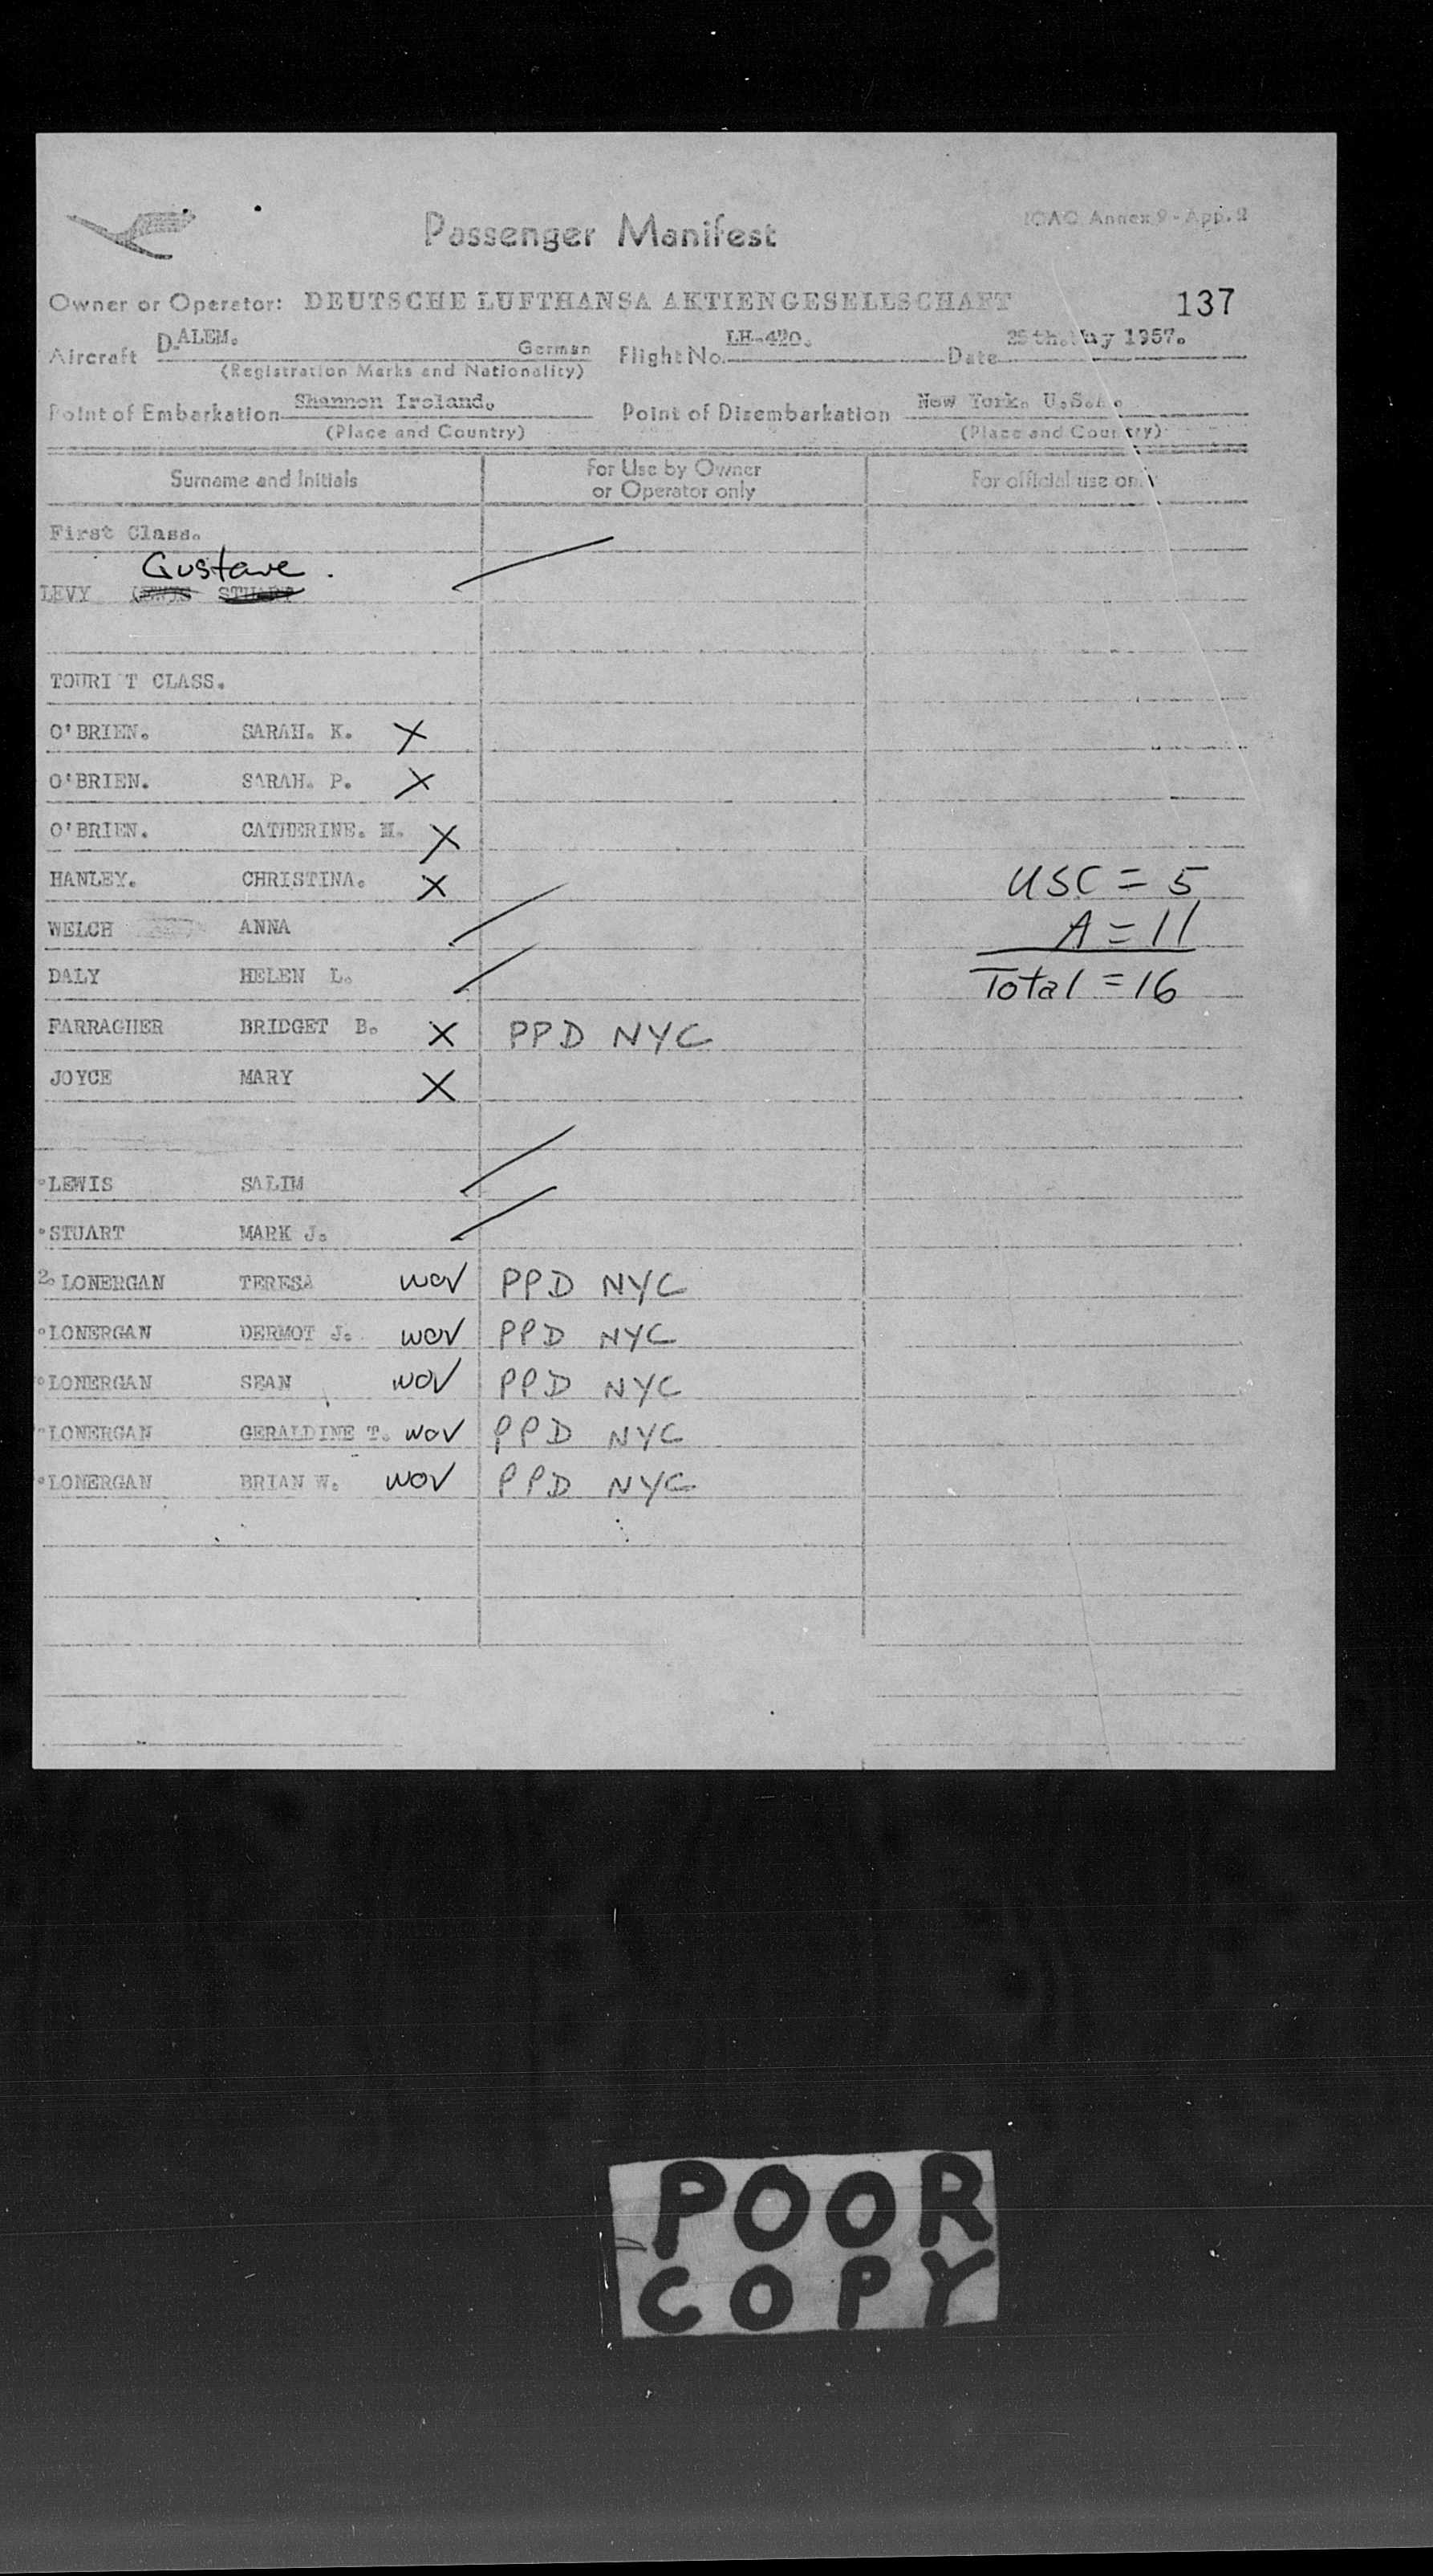 Passenger Manifest
ICAO Annex 9 - App. 2
Owner or Operator: DEUTSCHE LUFTHANSA AKTIENGESELLSCHAFT 137
Aircraft D-ALEM. German Flight No. LH-420. Date 25th. May 1957.
(Registration Marks and Nationality)
Point of Embarkation Shannon Ireland. Point of Disembarkation New York. U.S.A.
(Place and Country) (Place and Country)
Surname and Initials For Use by Owner or Operator only For official use only
First Class.
Gustave.
LEVY LEWIS STUART
TOURI T CLASS.
O'BRIEN. SARAH. K. X
O'BRIEN. SARAH. P. X
O'BRIEN. CATHERINE. M. X
HANLEY. CHRISTINA. X USC = 5
WELCH ANNA A = 11
DALY HELEN L. Total = 16
FARRAGHER BRIDGET B. X PPD NYC
JOYCE MARY X
LEWIS SALIM
STUART MARK J.
2. LONERGAN TERESA wov PPD NYC
LONERGAN DERMOT J. wov PPD NYC
LONERGAN SEAN wov PPD NYC
LONERGAN GERALDINE T. wov PPD NYC
LONERGAN BRIAN W. wov PPD NYC
POOR
COPY